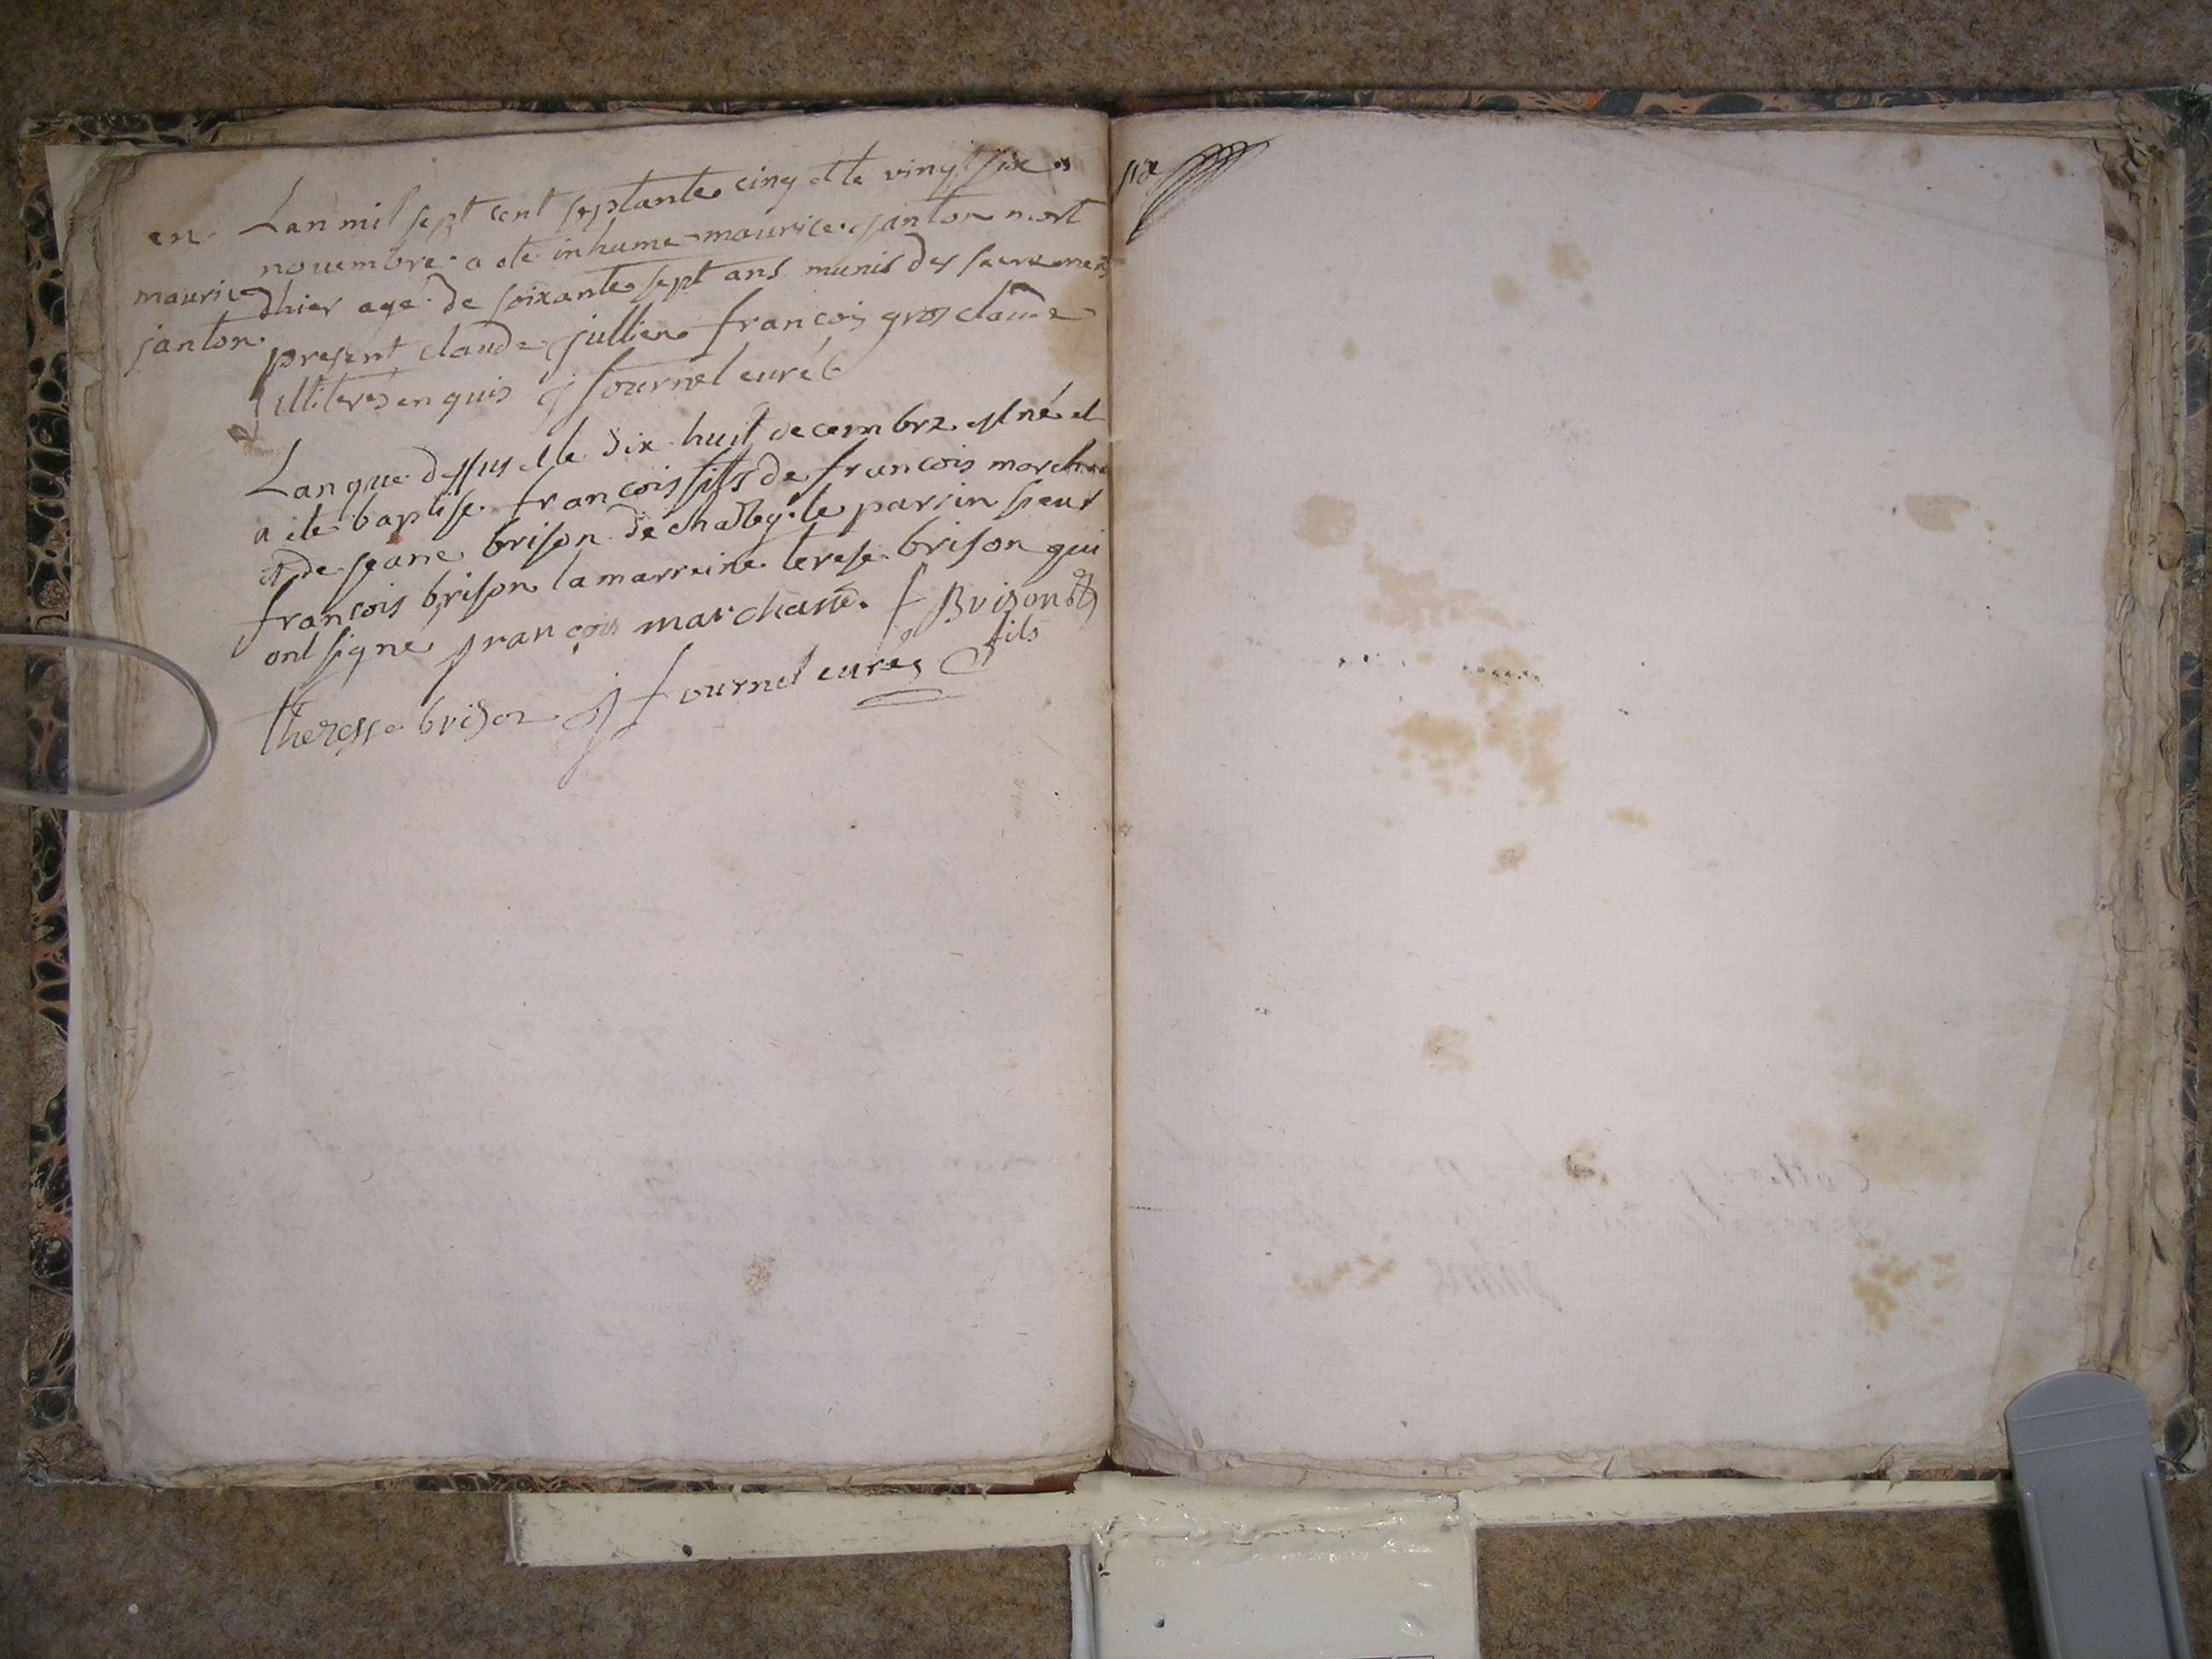 en.
maurice
janton.
Lan mil sept cent septante cinq et le vingt six
nouembre a ete inhume maurice janton mort
dhier agé de soixante sept ans munis des sacremens
present claude jullien francois gros claude
illiterés enquis j fournel curé
Lan que dessus et le dix huit decembre est né et
a ete baptise francois fils de francois marchan
et de jeane brison de le parrin sieur
francois brison la marreine terese brison qui
ont signé françois marchant. f Brison
fils
theresse brison j fournel curé
six